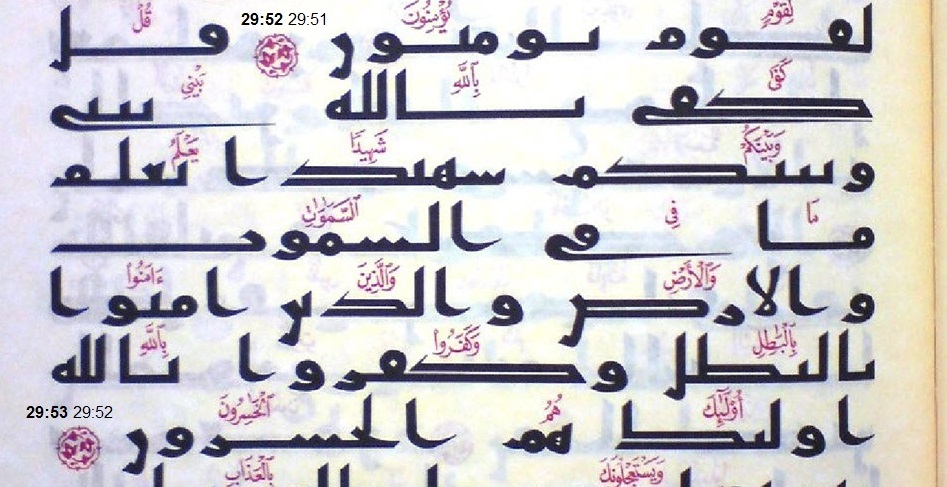 لِقَوْمٍ يُؤْمِنُونَ 29:52 29:51 قُلْ
لقوم يومنون قل
كَفَىٰ بِٱللَّهِ بَيْنِي
كفى بالله بيني
وَبَيْنَكُمْ شَهِيدًا يَعْلَمُ
وبينكم شهيدا يعلم
مَا فِي ٱلسَّمَٰوَٰتِ
ما في السموت
وَٱلْأَرْضِ وَٱلَّذِينَ ءَامَنُوا۟
والارض والذين امنوا
بِٱلْبَٰطِلِ وَكَفَرُوا۟ بِٱللَّهِ
بالبطل وكفروا بالله
أُو۟لَٰٓئِكَ هُمُ ٱلْخَٰسِرُونَ 29:53 29:52
اولئك هم الخسرون
وَيَسْتَعْجِلُونَكَ بِٱلْعَذَابِ